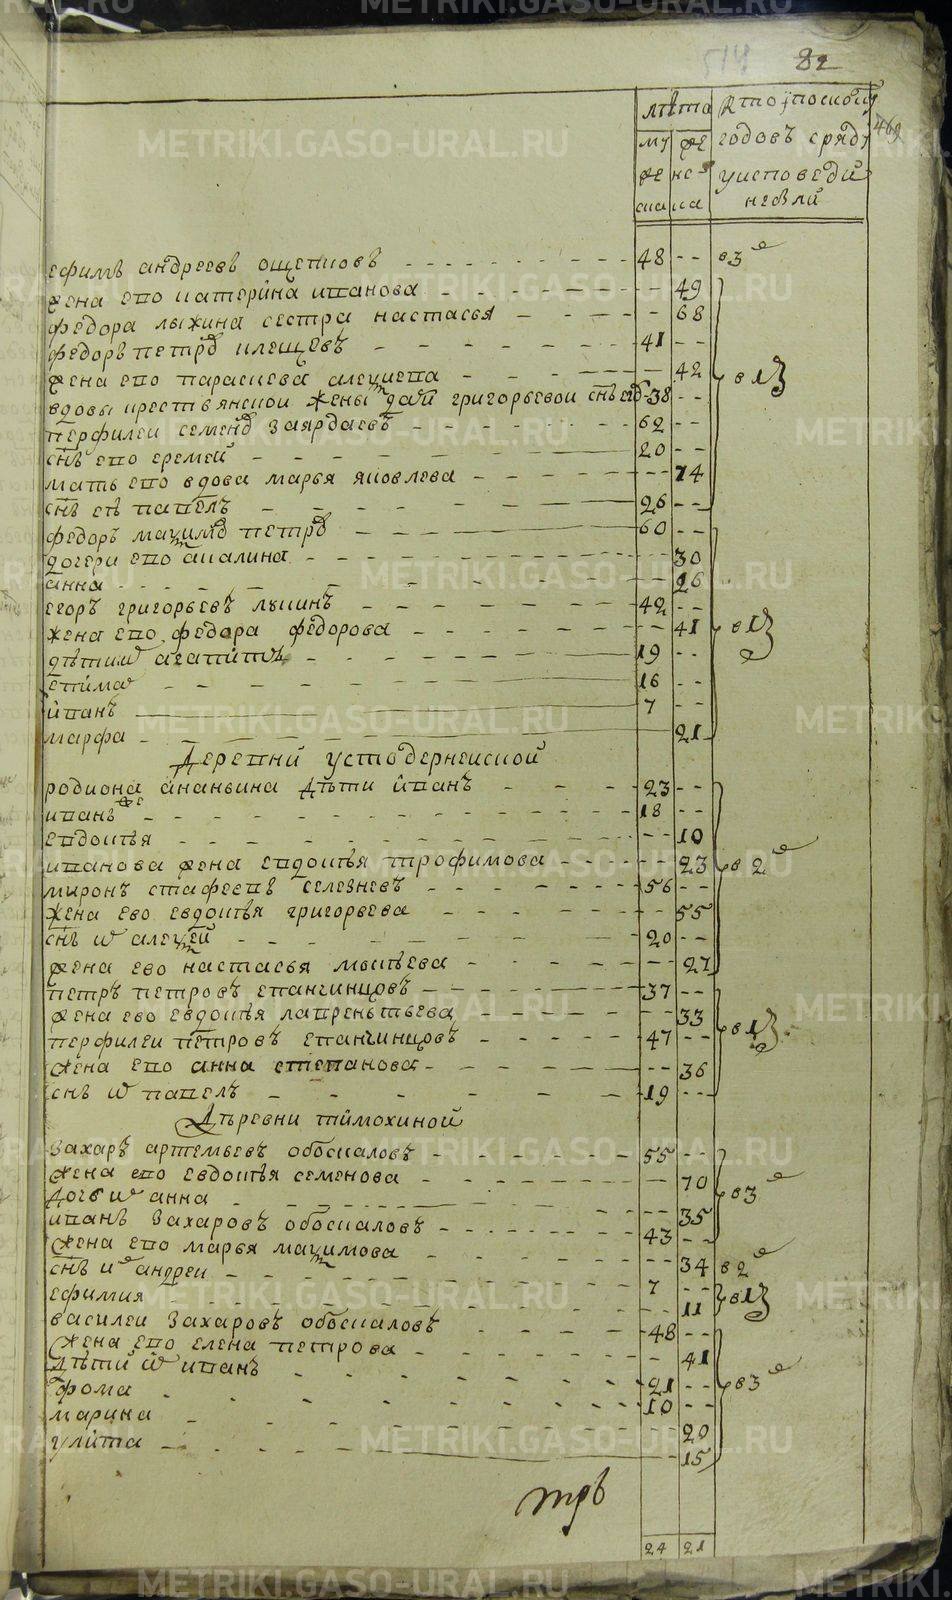 82
лѣта кто и поскол
му же годовъ сряд
же нс у исповеди
ска ка небыли
ефимъ андреевъ ощепковъ 48 в 3 е
жена ево катерина иванова 49
федора лыкина сестра настасья 68
федоръ петро клещевъ 41
жена ево парасковя алексиева 42 в 1 з
вдовы крестьянской жены григорьевой снъ 38
перфилеи семено заярдаевъ 62
снъ ево еремей 20
мать ево вдова марья яковлева 74
снъ ев павелъ 26
федоръ маѯимо петро 60
дочери ево акилина 30
анна 26
егоръ григорьевъ лукинъ 42
жена ево федора федорова 41 в 1 з
дѣти и агапитъ 19
ефима 16
иванъ 7
марфа 21
Деревни устодернейской
родиона ананьина дѣти иванъ 23
иванъ же 18
евдокѣя 10
иванова жена евдокѣя трофимова 23 в 2 е
миронъ стафеевъ селезневъ 56
жена ево евдокѣя григорьева 55
снъ и алеѯей 20
жена ево настасья мокѣева 27
петръ петровъ епанчинцовъ 37
жена ево евдокѣя лавреньтьева 33
перфилеи петровъ епанчинцовъ 47 в 1 з
жена ево анна степанова 36
снъ и павелъ 19
Дѣревни тимохиной
захаръ артемьевъ обоскаловъ 55
жена ево евдокѣя семенова 70 в 3 е
дочь и анна 35
иванъ захаровъ обоскаловъ 43
жена ево марья маѯимова 34 в 2 е
снъ и андреи 7
ефимия 11 в 1 з
василеи захаровъ обоскаловъ 48
жена ево елена петрова 41
дѣти и иванъ 21 в 3 е
фома 10
марина 20
улита 15
24 21
METRIKI.GASO-URAL.RU